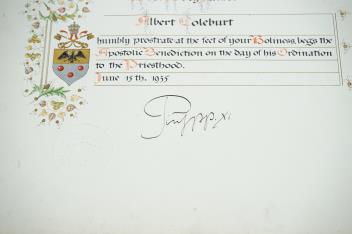 Albert Coleburt
humbly prostrate at the feet of your Holiness, begs the
Apostolic Benediction on the day of his Ordination
to the Priesthood.
June 15th. 1935
Pius PP. XI.